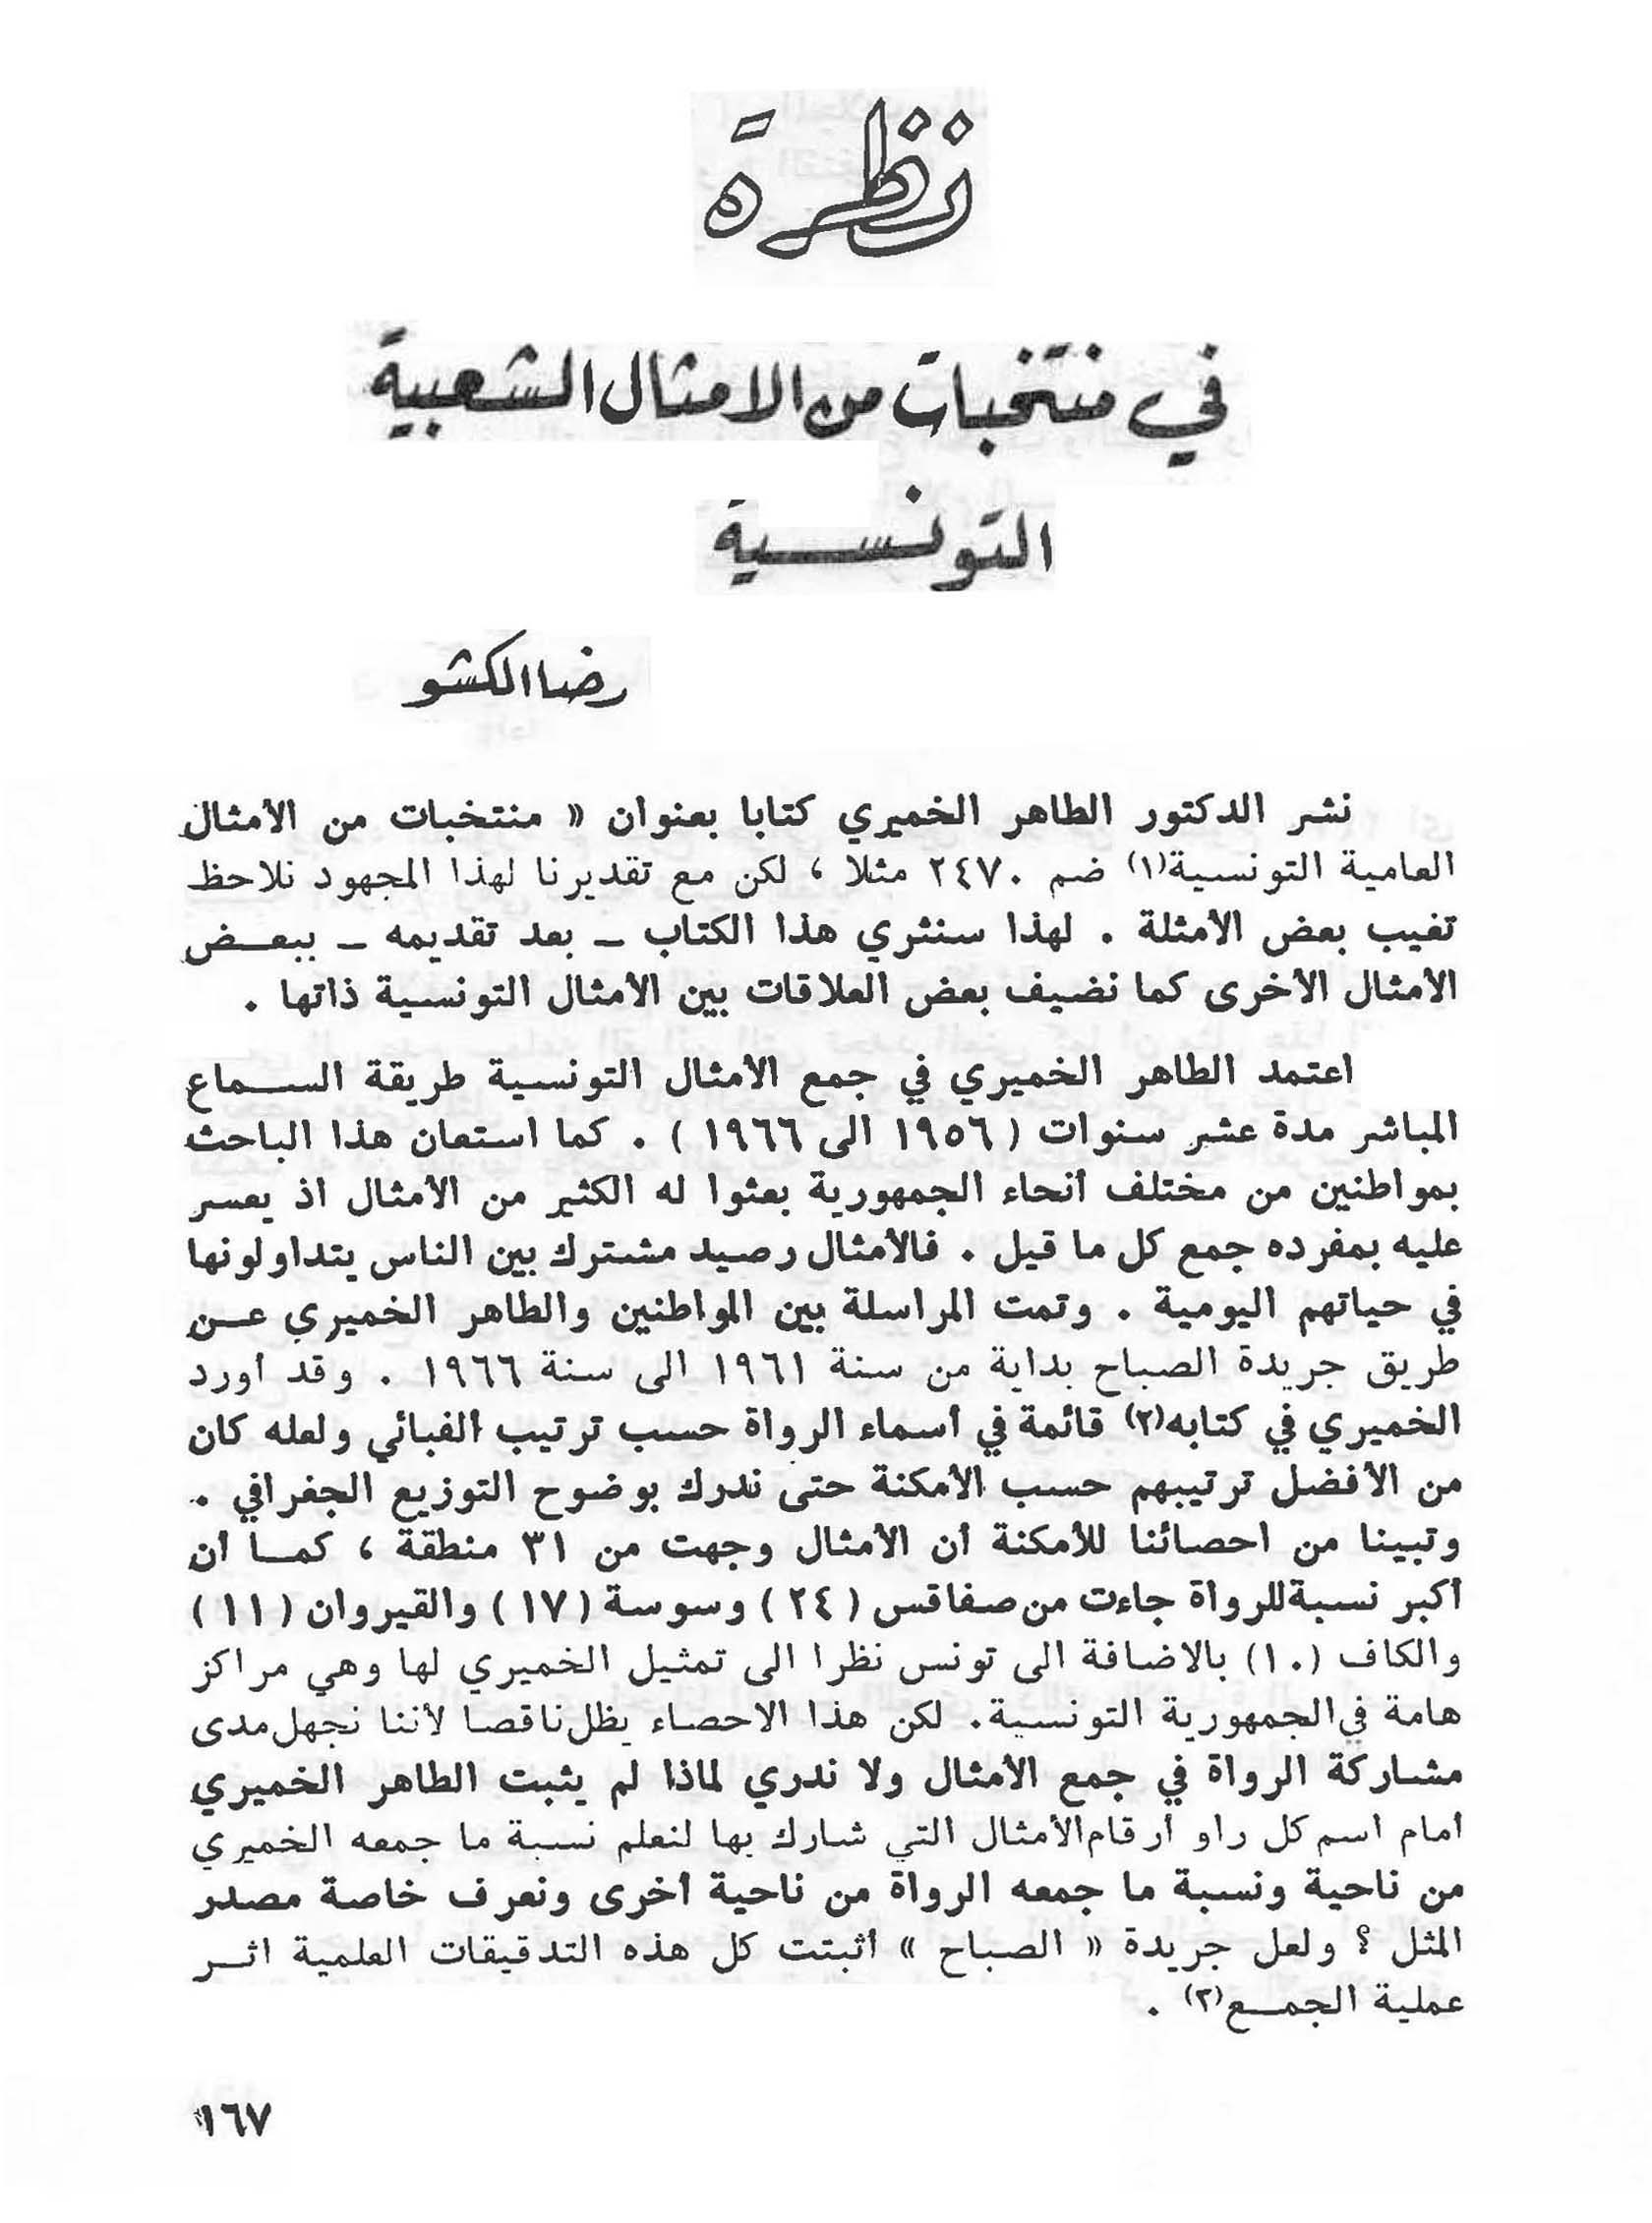 نظرة
في منتخبات من الامثال الشعبية
التونسية
رضا الكشو
نشر الدكتور الطاهر الخميري كتابا بعنوان « منتخبات من الأمثال
العامية التونسية(١) ضم ٢٤٧٠ مثلا ، لكن مع تقديرنا لهذا المجهود نلاحظ
تغيب بعض الأمثلة . لهذا سنثري هذا الكتاب ـ بعد تقديمه ـ ببعـض
الأمثال الأخرى كما نضيف بعض العلاقات بين الأمثال التونسية ذاتها .
اعتمد الطاهر الخميري في جمع الأمثال التونسية طريقة السـماع
المباشر مدة عشر سنوات ( ١٩٥٦ الى ١٩٦٦ ) . كما استعان هذا الباحث
بمواطنين من مختلف أنحاء الجمهورية بعثوا له الكثير من الأمثال اذ يعسر
عليه بمفرده جمع كل ما قيل . فالأمثال رصيد مشترك بين الناس يتداولونها
في حياتهم اليومية . وتمت المراسلة بين المواطنين والطاهر الخميري عـن
طريق جريدة الصباح بداية من سنة ١٩٦١ الى سنة ١٩٦٦ . وقد أورد
الخميري في كتابه(٢) قائمة في أسماء الرواة حسب ترتيب ألفبائي ولعله كان
من الأفضل ترتيبهم حسب الأمكنة حتى ندرك بوضوح التوزيع الجغرافي .
وتبينا من احصائنا للأمكنة أن الأمثال وجهت من ٣١ منطقة ، كمـا أن
أكبر نسبة للرواة جاءت من صفاقس ( ٢٤ ) وسوسة ( ١٧ ) والقيروان ( ١١ )
والكاف (١٠) بالاضافة الى تونس نظرا الى تمثيل الخميري لها وهي مراكز
هامة في الجمهورية التونسية. لكن هذا الاحصاء يظل ناقصا لأننا نجهل مدى
مشاركة الرواة في جمع الأمثال ولا ندري لماذا لم يثبت الطاهر الخميري
أمام اسم كل راو أرقام الأمثال التي شارك بها لنعلم نسبة ما جمعه الخميري
من ناحية ونسبة ما جمعه الرواة من ناحية أخرى ونعرف خاصة مصدر
المثل ؟ ولعل جريدة « الصباح » أثبتت كل هذه التدقيقات العلمية اثـر
عملية الجمـع(٣) .
١٦٧